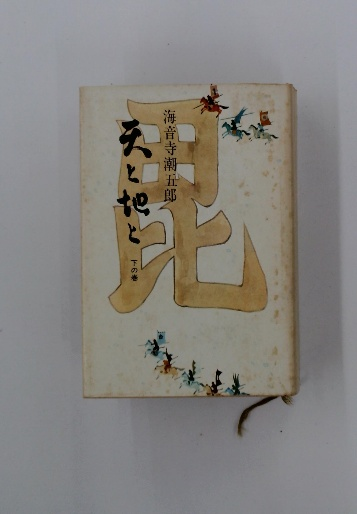 毘
海音寺潮五郎
天と地と
下の巻